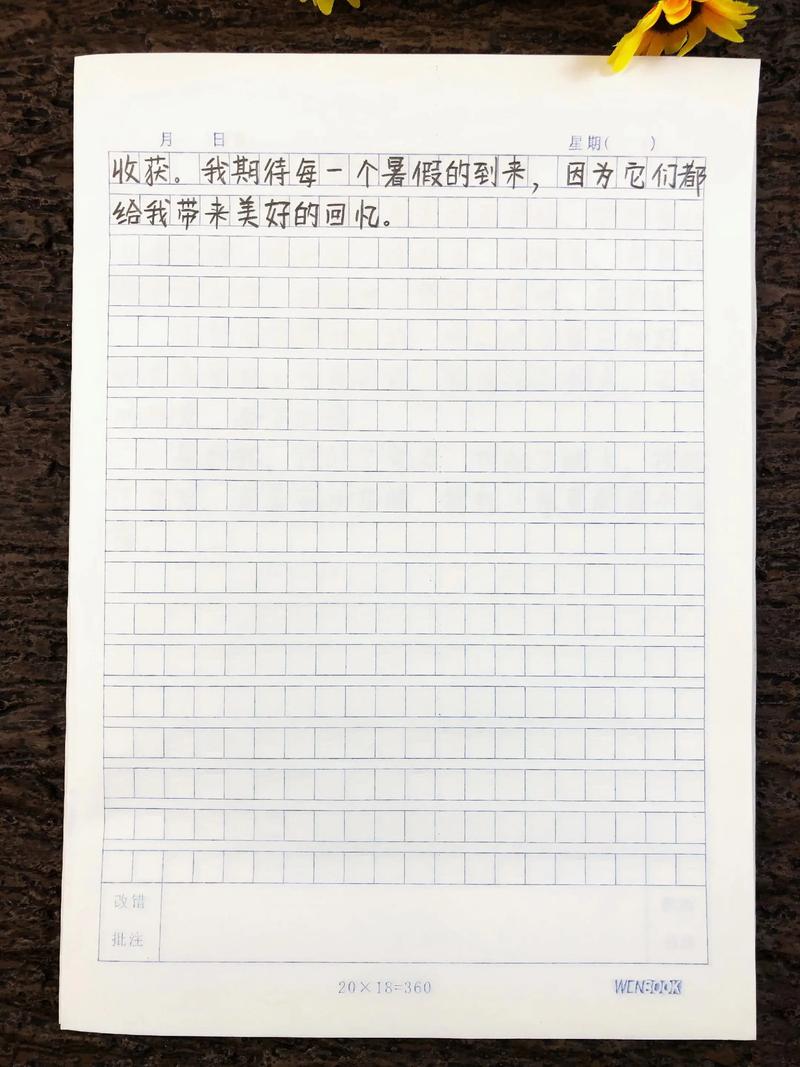 月 日 星期( )
收获。我期待每一个暑假的到来，因为它们都
给我带来美好的回忆。
改错
批注
20×18=360 WENBOOK